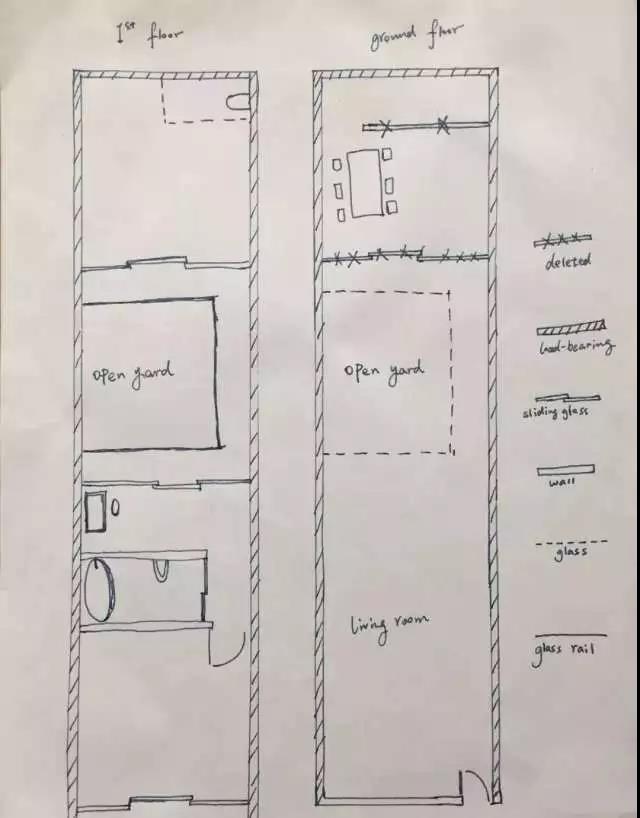 1st floor
ground floor
open yard
open yard
living room
deleted
load-bearing
sliding glass
wall
glass
glass rail